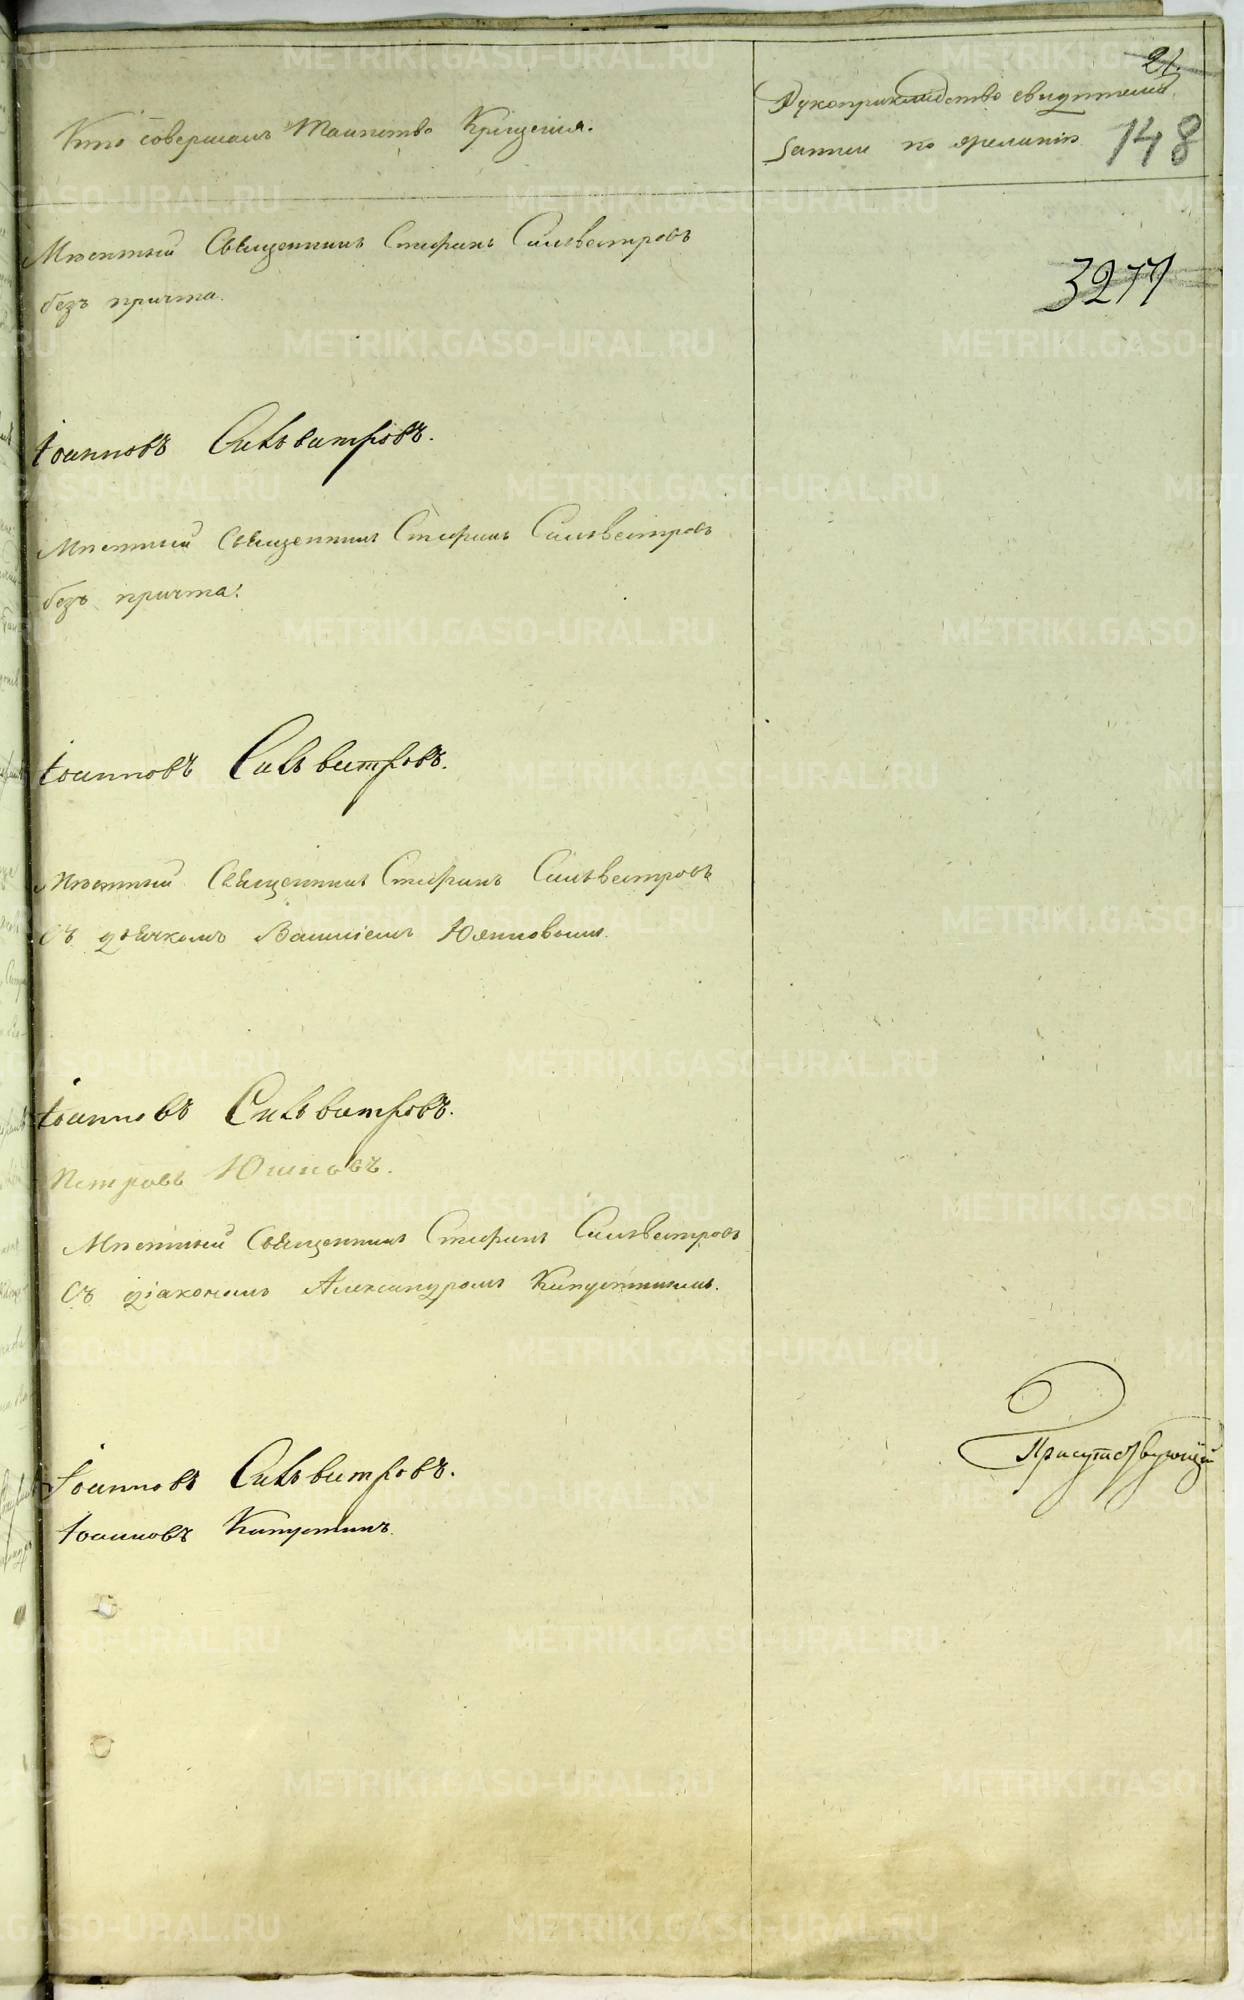 21.
Кто совершалъ Таинство Крещенія.
Рукоприкладство свидѣтелей
записи по желанію
148
3277
Мѣстный Священникъ Стефанъ Сильвестровъ
безъ причта.
Іоанновъ Сильвестровъ.
Мѣстный Священникъ Стефанъ Сильвестровъ
безъ причта.
Іоанновъ Сильвестровъ.
Мѣстный Священникъ Стефанъ Сильвестровъ
Съ дьячкомъ Юшковымъ.
Іоанновъ Сильвестровъ.
Петровъ Юшковъ.
Мѣстный Священникъ Стефанъ Сильвестровъ
Съ діакономъ Александромъ Капустинымъ.
Присутствующій
Іоанновъ Сильвестровъ.
Іоанновъ Капустинъ.
METRIKI.GASO-URAL.RU